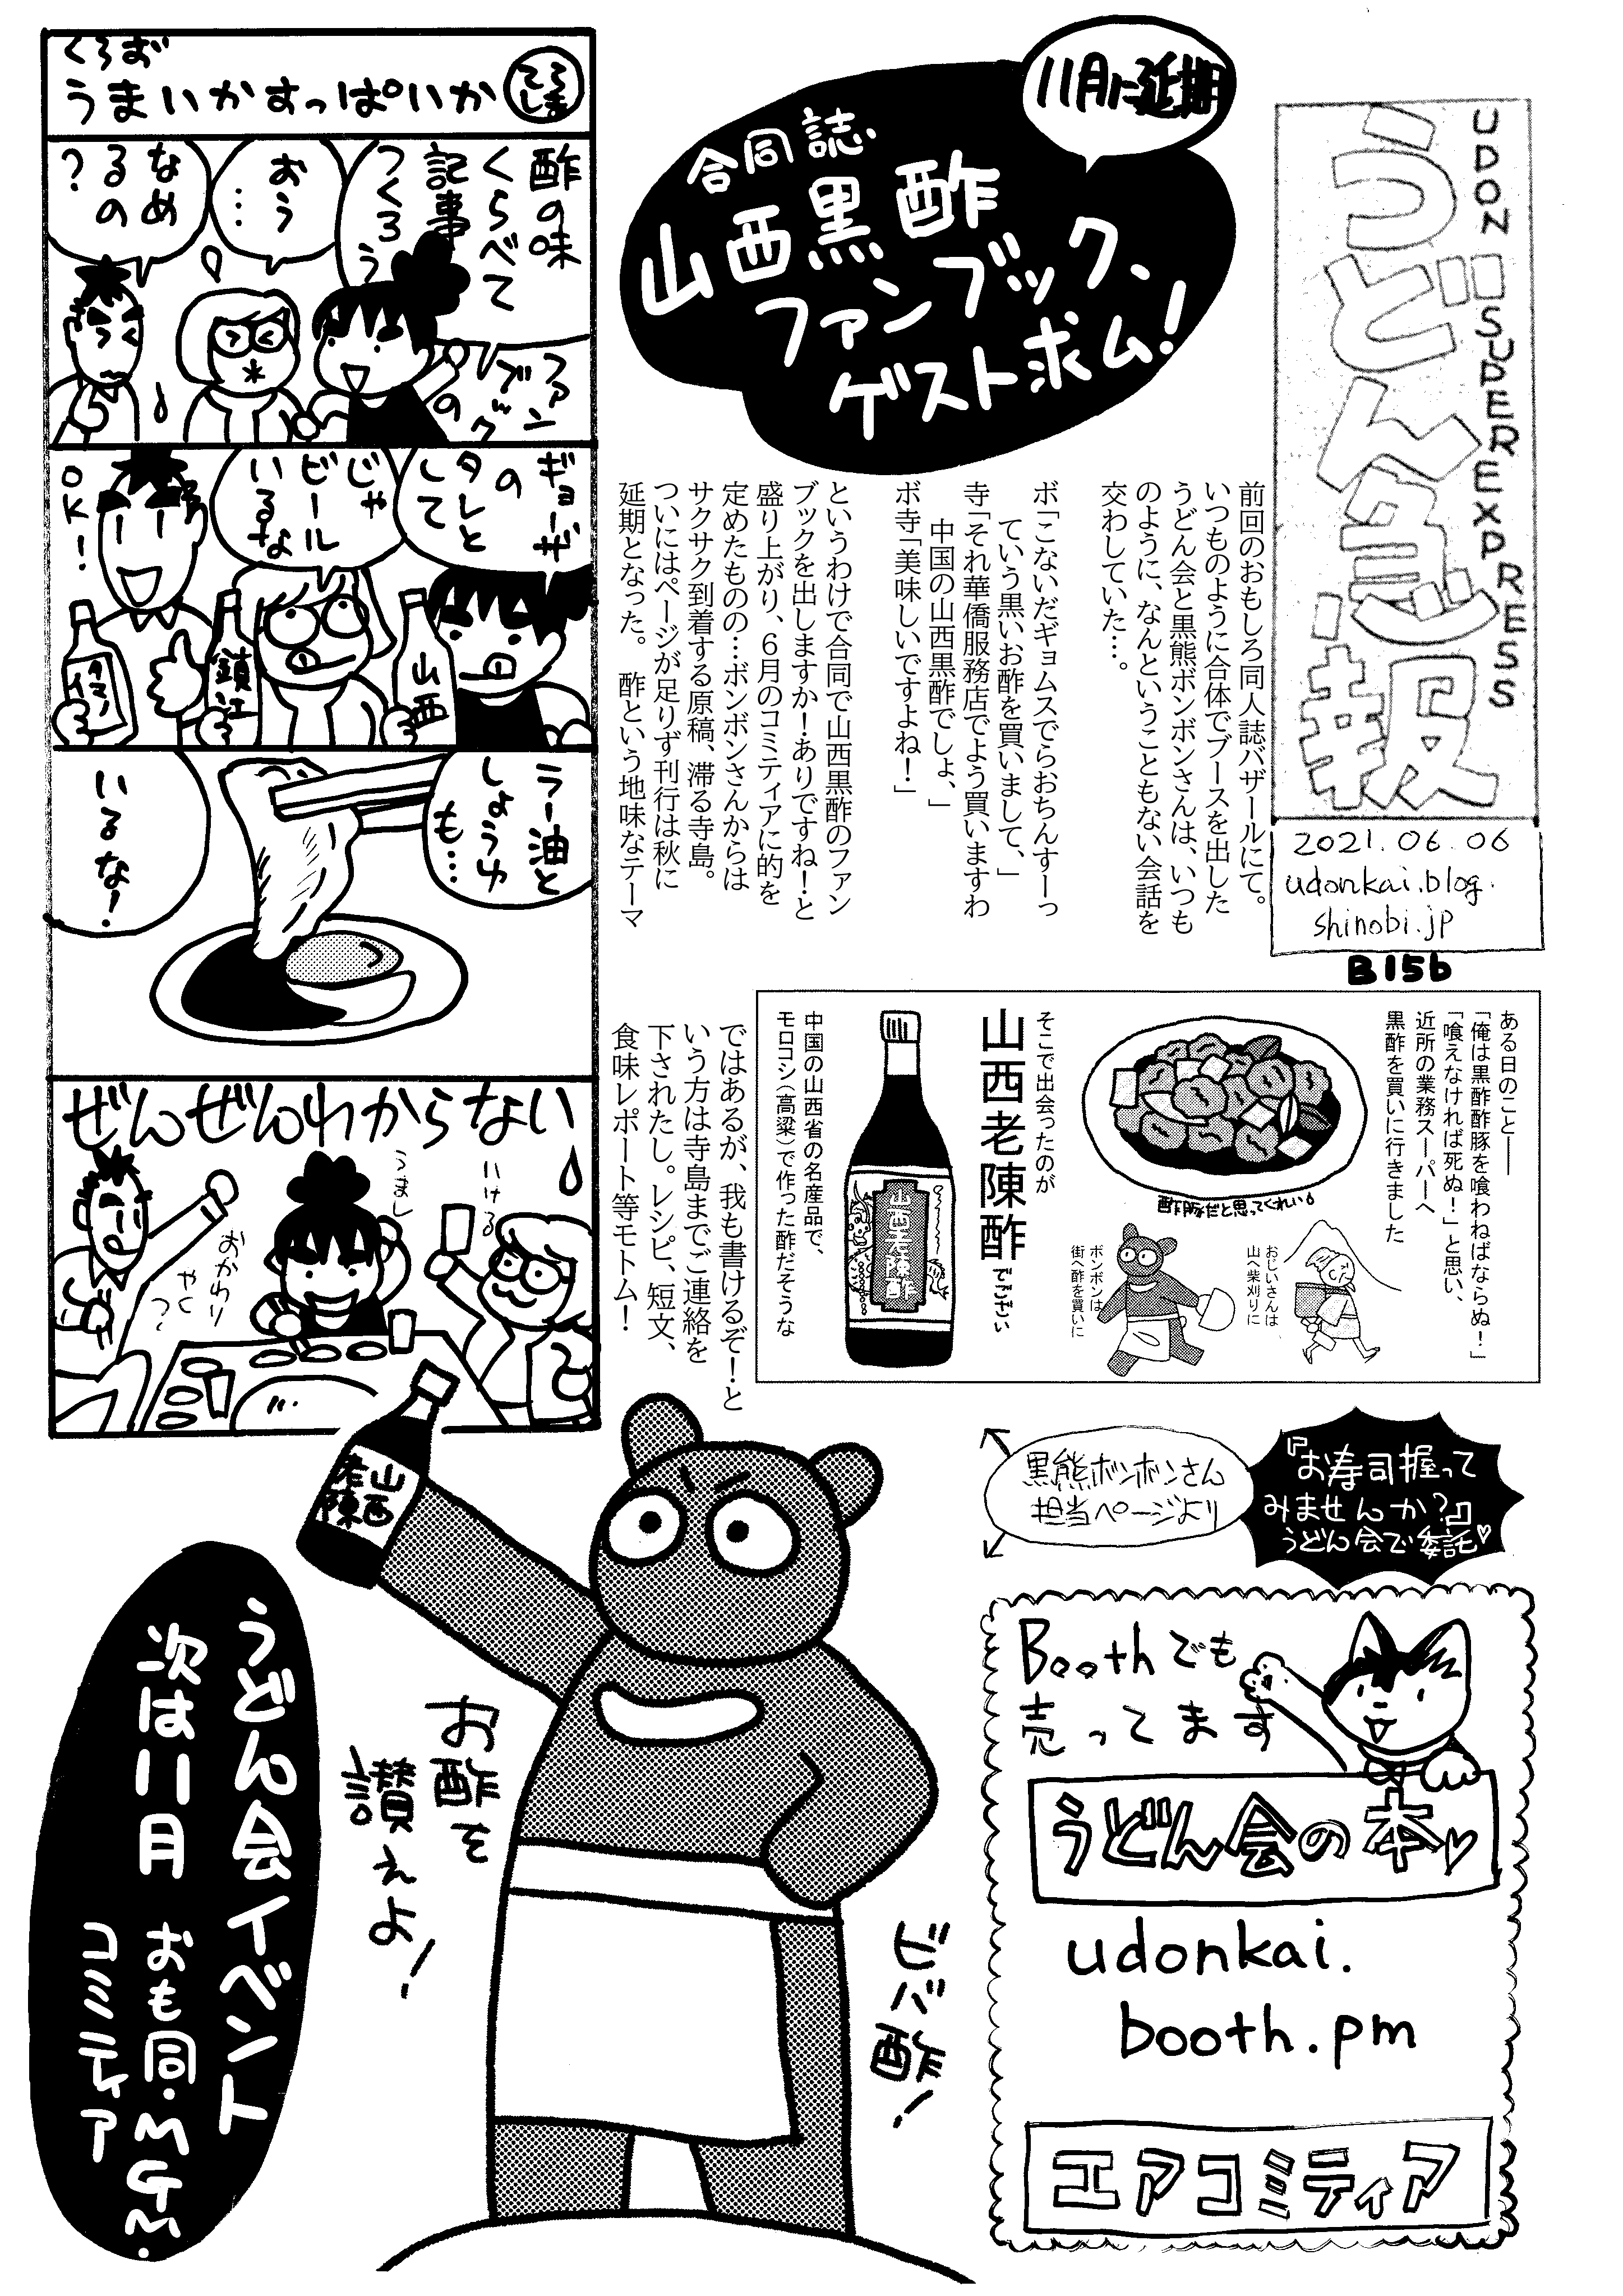 うどん急報
UDON SUPER EXPRESS
2021.06.06
udonkai.blog.
shinobi.jp
B15b
11月に延期
合同誌
山西黒酢
ファンブック、
ゲスト求ム!
前回のおもしろ同人誌バザールにて。
いつものように合体でブースを出した
うどん会と黒熊ボンボンさんは、いつも
のように、なんということもない会話を
交わしていた…。
ボ「こないだギョムスでらおちんすーっ
ていう黒いお酢を買いまして、」
寺「それ華僑服務店でよう買いますわ
中国の山西黒酢でしょ、」
ボ寺「美味しいですよね!」
というわけで合同で山西黒酢のファン
ブックを出しますか!ありですね!と
盛り上がり、6月のコミティアに的を
定めたものの…ボンボンさんからは
サクサク到着する原稿、滞る寺島。
ついにはページが足りず刊行は秋に
延期となった。 酢という地味なテーマ
ではあるが、我も書けるぞ!と
いう方は寺島までご連絡を
下されたし。レシピ、短文、
食味レポート等モトム!
くろお
うまいかすっぱいか
てらしま
酢の味
くらべて
記事
つくろう
ファン
ブック
の
おう
…
なめ
るの
?
ギョーザ
の
タレと
して
じゃ
ビール
いるな
OK!
山西
鎮江
ラー油と
しょうゆ
も…
いるな!
ぜんぜんわからない
いける
うまし
おかわり
やく?
ある日のこと――
「俺は黒酢酢豚を喰わねばならぬ!」
「喰えなければ死ぬ!」と思い、
近所の業務スーパーへ
黒酢を買いに行きました
酢豚だと思ってくれい
おじいさんは
山へ柴刈りに
ボンボンは
街へ酢を買いに
そこで出会ったのが
山西老陳酢でござい
山西老陳酢
中国の山西省の名産品で、
モロコシ(高粱)で作った酢だそうな
黒熊ボンボンさん
担当ページより
『お寿司握って
みませんか?』
うどん会で委託♡
山西
老陳
お酢を
讃えよ!
ビバ酢!
うどん会イベント
次は11月 おも同・MGM・
コミティア
Boothでも
売ってます
うどん会の本♡
udonkai.
booth.pm
エアコミティア